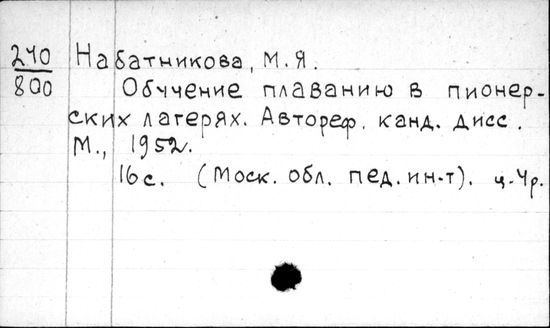 240 Набатникова, М.Я.
800 Обучение плаванию в пионер-
ских лагерях. Автореф. канд. дисс.
М., 1952.
16с. (Моск. обл. пед. ин-т). ц.4р.